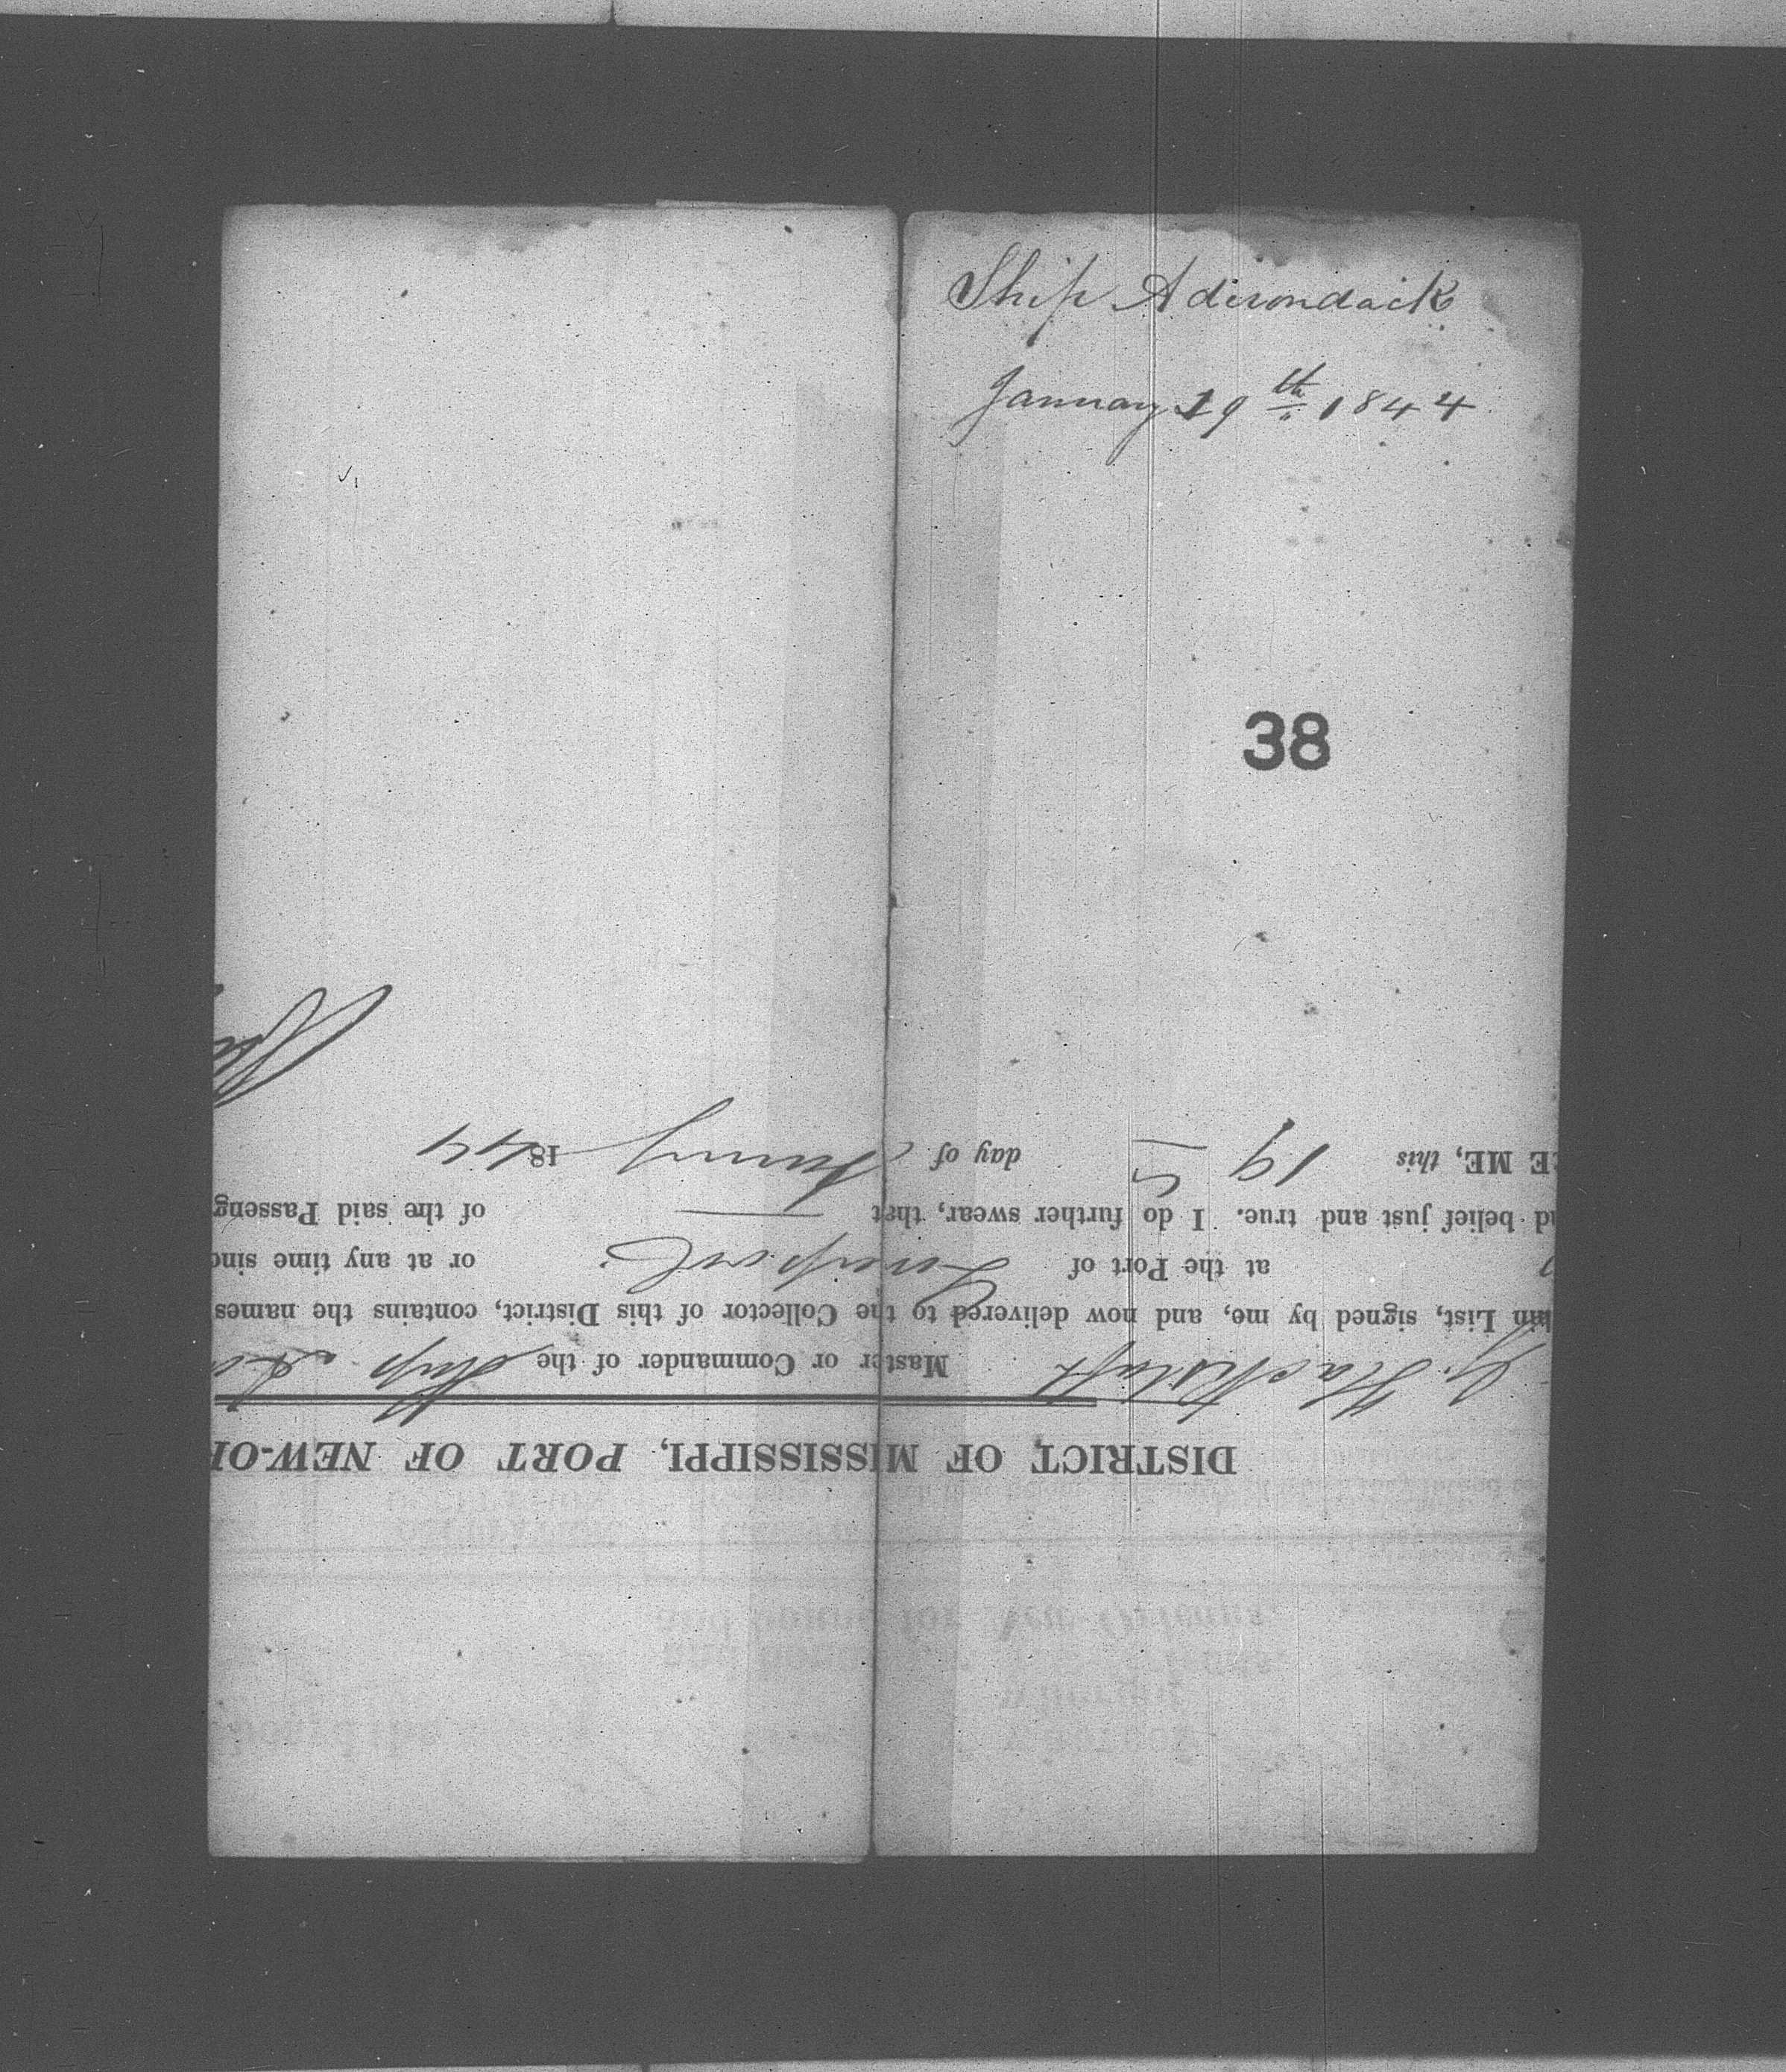 Ship Adirondack
January 19th 1844
38
DISTRICT OF MISSISSIPPI, PORT OF NEW-OR
Master or Commander of the Ship
List, signed by me, and now delivered to the Collector of this District, contains the names
at the Port of Liverpool or at any time sinc
d belief just and true. I do further swear, that of the said Passeng
E ME, this 19 day of January 1844